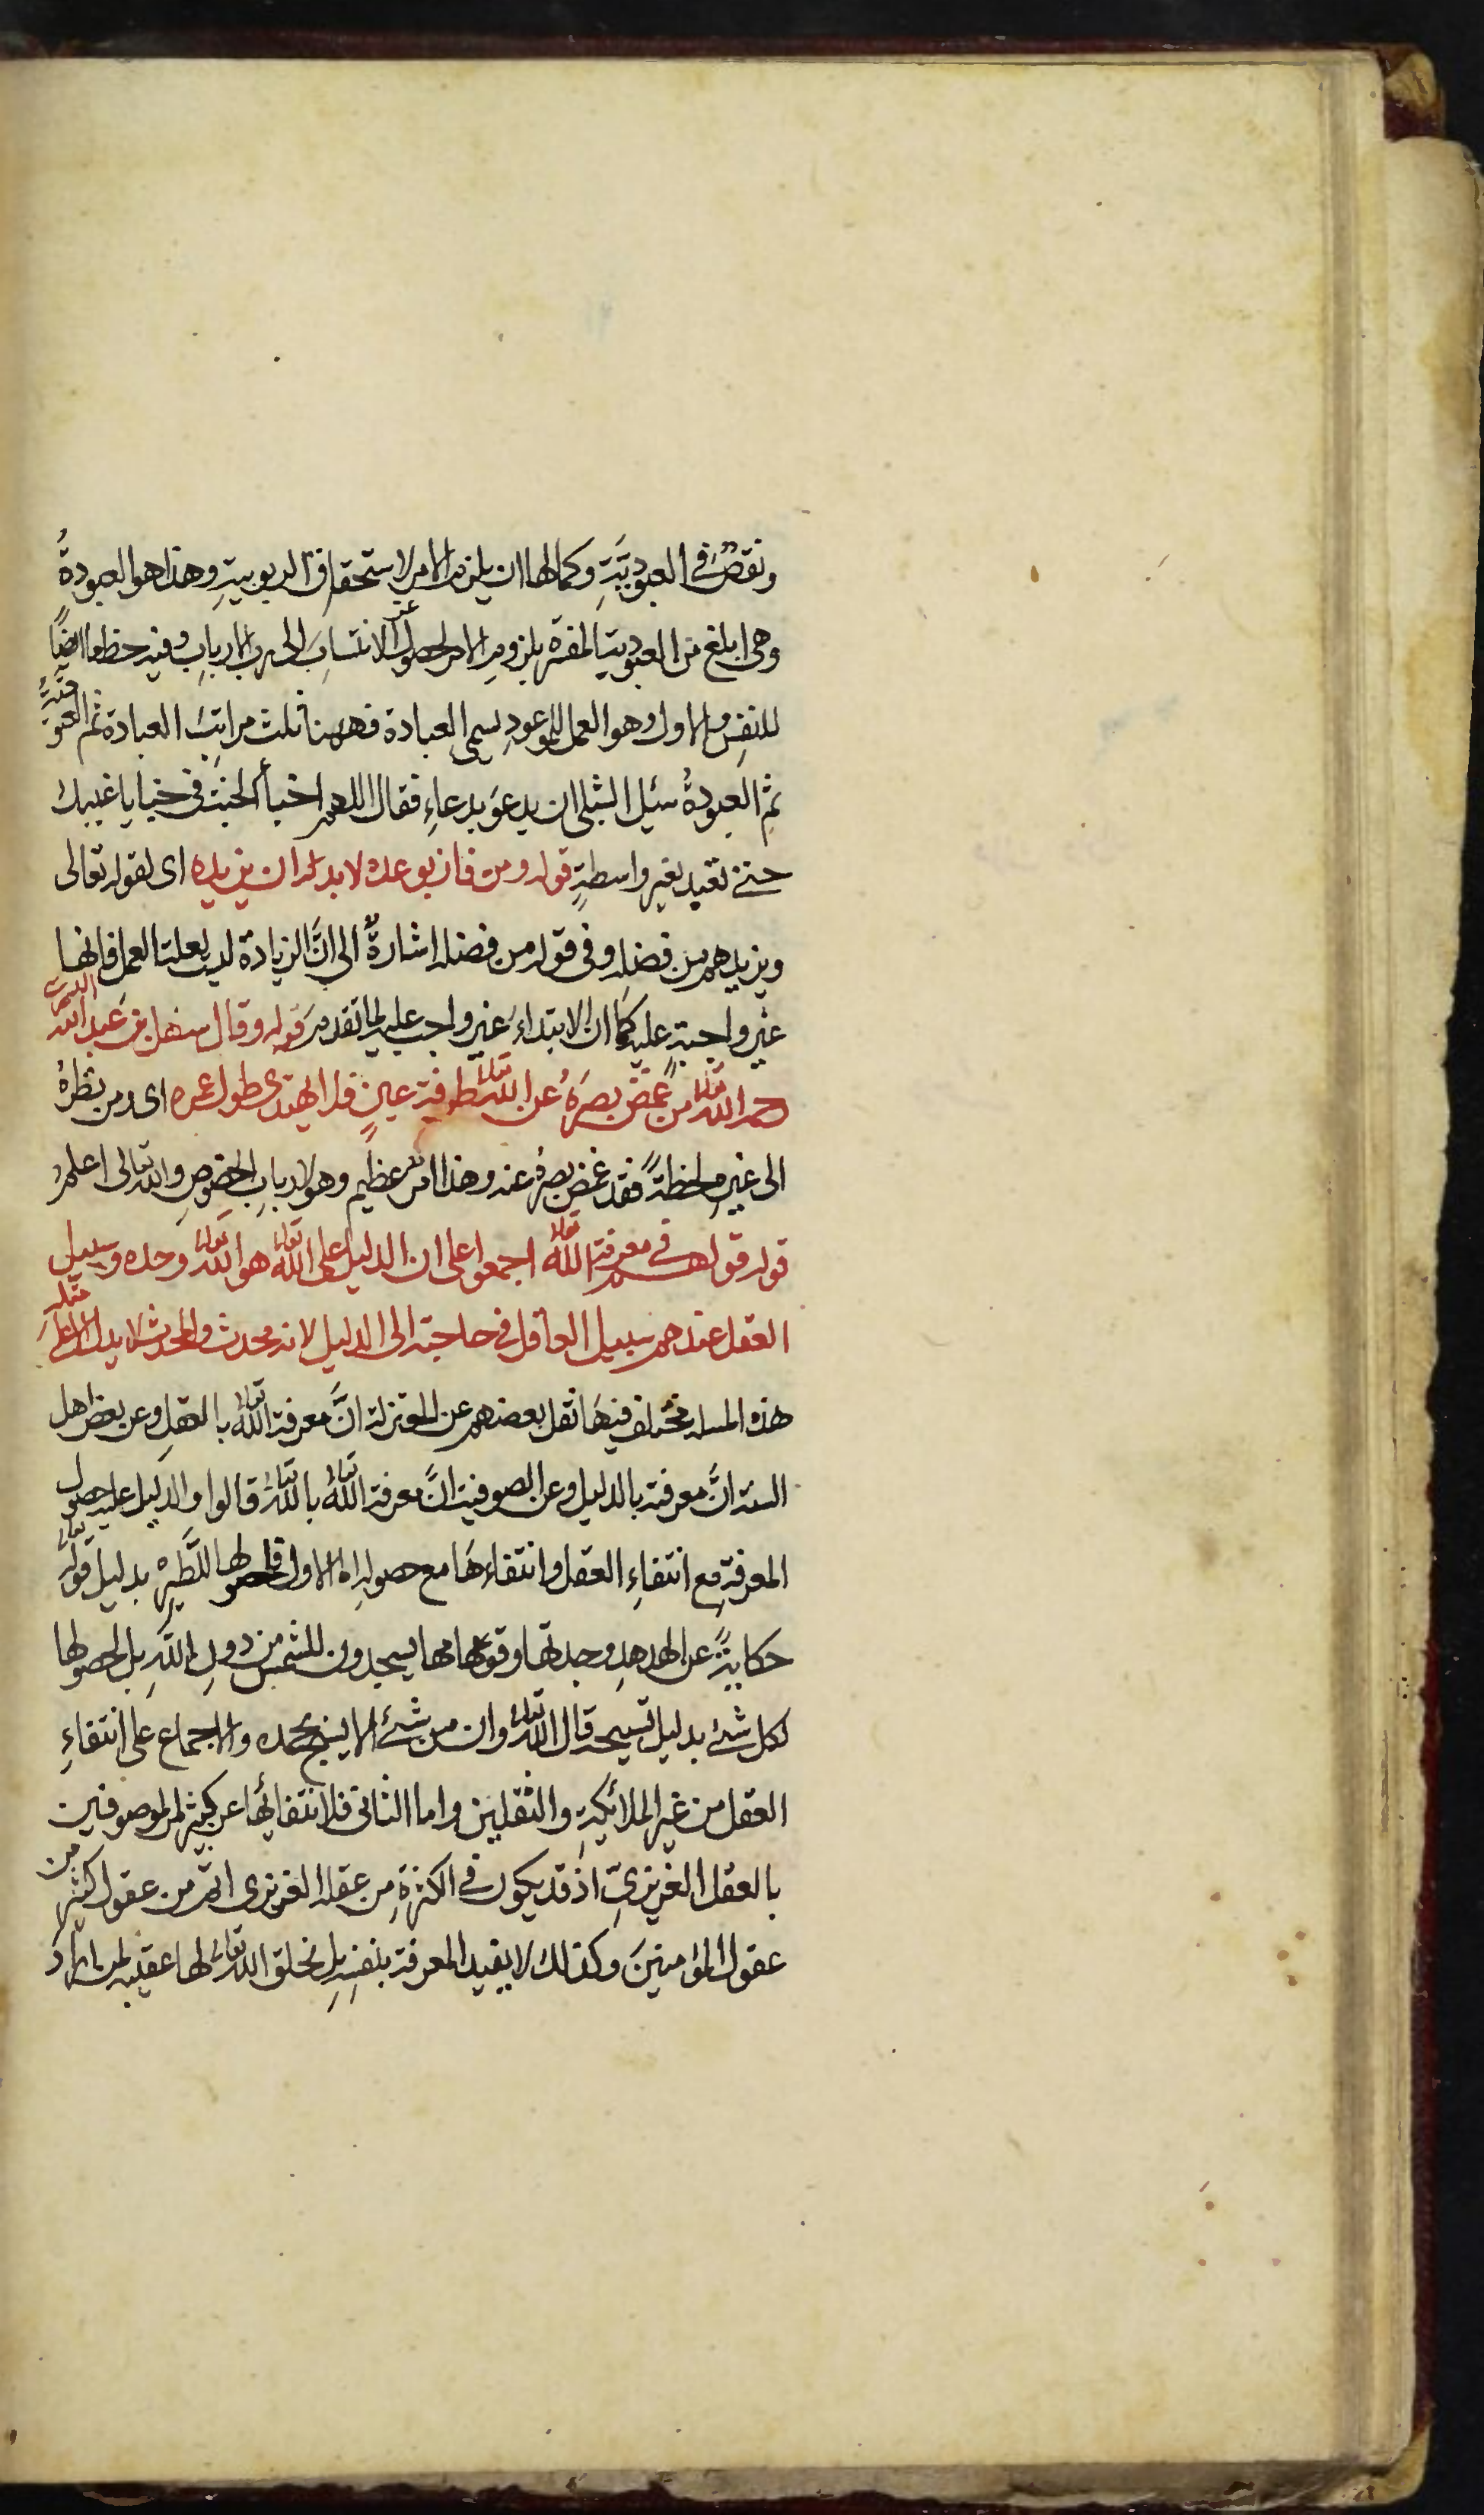 ونقصٌ في العبوديّةِ وكمالها ان يلزم الامر لاستحقاق الربوبيةِ وهذا هو العبودةُ
وهى ابلغ من العبودية المفسّرة بلزوم الامر لحصول عز الانتساب الى رب الارباب وفيه حظ ما ايضًا
للنفسِ والاول وهو العمل للموعودِ يسمى العبادة فههنا ثلث مراتب العبادة ثم العبوديّة
ثم العبودةُ سئل الشبلى ان يدعوَ بدعاءٍ فقال اللهم اخبأ الجنة فى خبايا غيبك
حتى نعبد بغير واسطةٍ قوله ومن فاز بوعده لا بد له ان يزيده اى لقوله تعالى
ويزيدهم من فضله وفى قوله من فضله اشارةٌ الى انَّ الزيادة ليست لعلة العمل فانها
غير واجبةٍ عليه كما ان الابتداء غير واجب عليه لما تقدم قوله وقال سهل بن عبد الله التسترى
رحمه الله تعالى من غمّض بصرَهُ عن الله تعالى طرفة عينٍ فلا يهتدى طول عمره اى ومن نظرُهُ
الى غيره لحظةً فقد غمض بصره عنه وهذا امر عظيم وهو لارباب الخصوصِ والله تعالى اعلم
قوله قولهم في معرفة الله تعالى اجمعوا على ان الدليل على الله تعالى هو الله تعالى وحده وسبيل
العقل عندهم سبيل العاقل فى حاجته الى الدليل لانه محدث والمحدث لا يدل الا على مثله
هذه المسلة مختلف فيها نقل بعضهم عن المعتزلة انَّ معرفة الله تعالى بالعقل وعن بعض اهل
السنة انَّ معرفته بالدليل وعن الصوفية انَّ معرفة الله تعالى بالله تعالى قالوا والدليل عليه حصول
المعرفةِ مع انتفاءِ العقل وانتفاءها مع حصوله اما الاول فلحصولها للطير بدليل قوله تعالى
حكايةً عن الهدهدِ وجدتها وقومها يسجدون للشمس من دون اللهِ بل لحصولها
لكل شئ بدليل تسبيحه قال الله تعالى وان من شئ الا يسبح بحمده والاجماع على انتفاءِ
العقل من غير الملائكةِ والثقلين واما الثانى فلانتفائها عن كثير من الموصوفين
بالعقل الغريزىّ اذ قد يكون في الكفرةِ من عقله الغريزى اتمّ من عقول كثير من
عقول المؤمنينَ وكذلك لا يفيد المعرفة بنفسه بل بخلق الله تعالى لها عقيبه لمن اراد